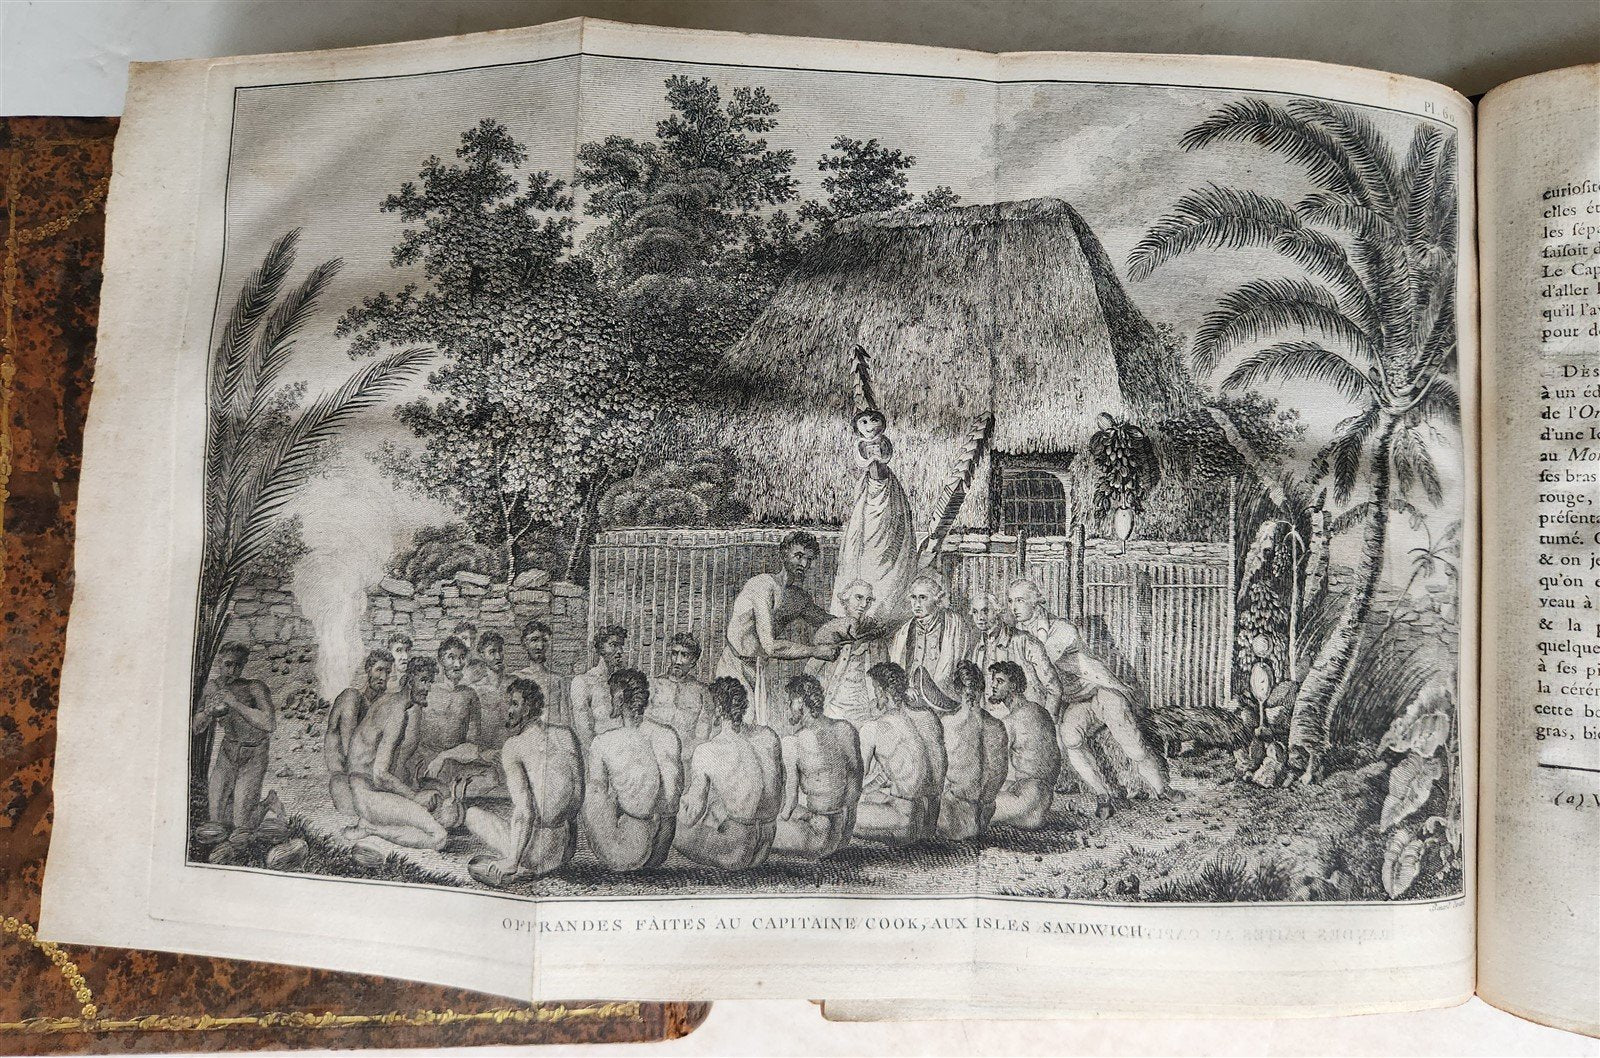 Pl. 60.
OFFRANDES FAITES AU CAPITAINE COOK, AUX ISLES SANDWICH
curiosité
elles ét
les sépa
faisoit d
Le Cap
d'aller
qu'il l'av
pour de
DES
à un éd
de l'Or
d'une Id
au Mor
ses bras
rouge,
présenta
tumé. C
& on je
qu'on e
veau à
& la p
quelque
à ses pi
la cérém
cette bo
gras, bie
(a) V